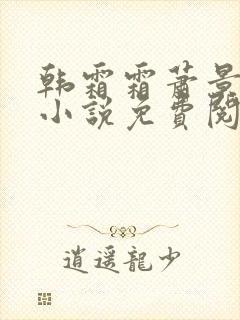 韩霜霜萧景
小说免費閱
逍遥龍少